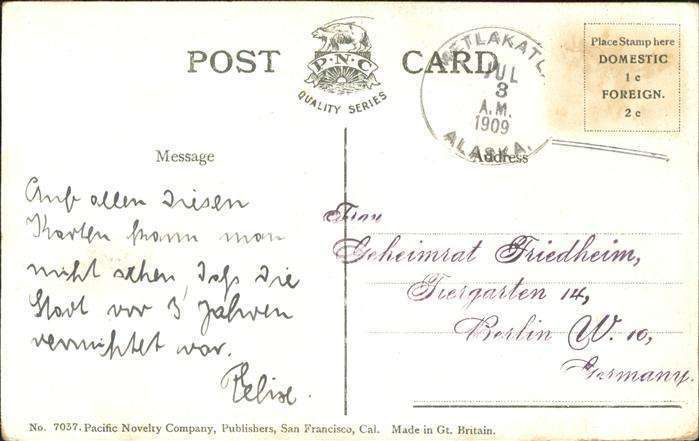 POST CARD
P·N·C
QUALITY SERIES
METLAKATL
JUL
3
A.M.
1909
ALASKA.
Place Stamp here
DOMESTIC
1c
FOREIGN.
2c
Message
Address
Auf allen diesen
Karten kann man
nicht sehen, daß die
Stadt vor 3 Jahren
vernichtet war.
Felix.
Frau
Geheimrat Friedheim,
Tiergarten 14,
Berlin W. 10,
Germany.
No. 7037. Pacific Novelty Company, Publishers, San Francisco, Cal. Made in Gt. Britain.